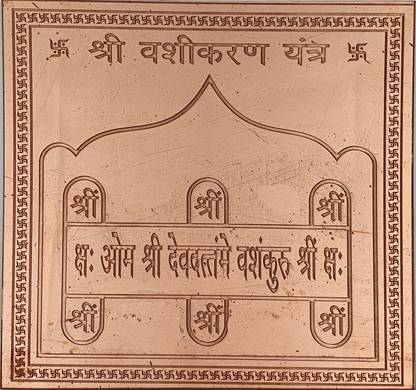 श्री वशीकरण यंत्र
श्रीं श्रीं श्रीं
क्षः ओम श्री देवदत्तंमे वशंकुरु श्रीं क्षः
श्रीं श्रीं श्रीं